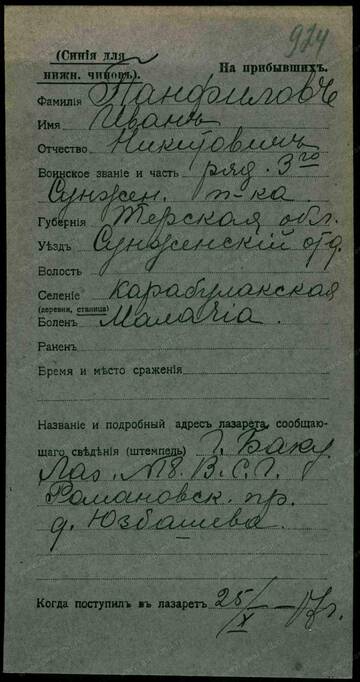 924
(Синія для
нижн. чиновъ).
На прибывшихъ.
Фамилія Панфиловъ
Имя Иванъ
Отчество Никитовичъ
Воинское званіе и часть ряд. 3го
Сунжен. п-ка
Губернія Терская обл.
Уѣздъ Сунженскій отд.
Волость
Селеніе Карабулакская
(деревня, станица)
Боленъ Малачіа.
Раненъ
Бремя и мѣсто сраженія
Названіе и подробный адресъ лазарета, сообщаю-
щаго свѣдѣнія (штемпель) Г. Баку
Лаз. №8. В.С.Г.
Романовск. пр.
д. Юзбашева.
Когда поступилъ въ лазаретъ 25/X—17г.